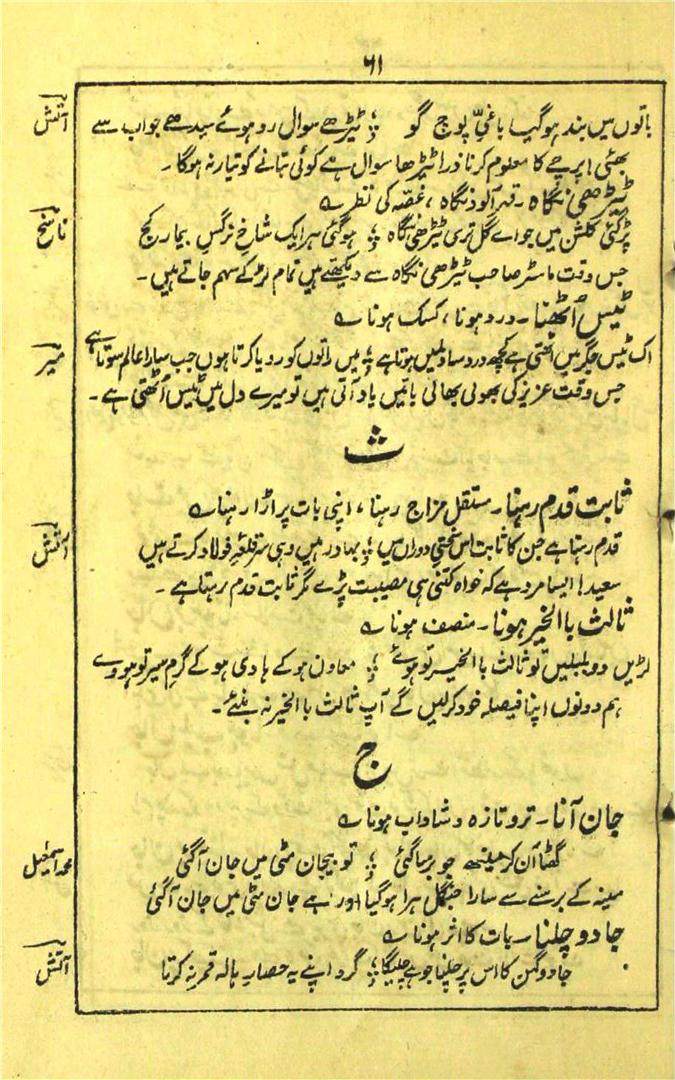 ۶۱
باتوں میں بند ہوگیا باغیِ پوچ گو ؛ ٹیڑھے سوال رد ہوئے سیدھے جواب سے
آتش
بھئی! پرچے کا معلوم کرنا ذرا ٹیڑھا سوال ہے کوئی بتانے کو تیار نہ ہوگا۔
ٹیڑھی نگاہ ۔ قہر آلود نگاہ ، غصّہ کی نظر ے
پڑگئی گلشن میں جو اے گل تری ٹیڑھی نگاہ ؛ ہوگئی ہر ایک شاخِ نرگسِ بیمار کج
ناسخ
جس وقت ماسٹر صاحب ٹیڑھی نگاہ سے دیکھتے ہیں تمام لڑکے سہم جاتے ہیں۔
ٹیس اُٹھنا ۔ درد ہونا ، کسک ہونا ے
اک ٹیس جگر میں اٹھتی ہے کچھ درد سا دلمیں ہوتا ہے ؛ میں راتوں کو رویا کرتا ہوں جب سارا عالم سوتا ہے
میر
جس وقت عزیز کی بھولی بھالی باتیں یاد آتی ہیں تو میرے دل میں ٹیس اُٹھتی ہے۔
ث
ثابت قدم رہنا ۔ مستقل مزاج رہنا ، اپنی بات پر اڑا رہنا ے
قدم رہتا ہے جن کا ثابت اس سختیِ دوراں میں ؛ بہادر ہیں وہی سر قلعۂ فولاد کرتے ہیں
آتش
سعید! ایسا مرد ہے کہ خواہ کتنی ہی مصیبت پڑے مگر ثابت قدم رہتا ہے۔
ثالث با الخیر ہونا ۔ منصف ہونا ے
لڑیں دو بلبلیں تو ثالث با الخیر تو ہوئے ؛ معاون ہو کے ہادی ہو کے گرم سیر تو ہووے
ہم دونوں اپنا فیصلہ خود کرلیں گے آپ ثالث با الخیر نہ بنئے۔
ج
جان آنا ۔ تر و تازہ و شاداب ہونا ے
گھٹا آن کر مینھ جو برسا گئی ؛ تو بیجان مٹی میں جان آگئی
محمد اسمٰعیل
مینہ کے برسنے سے سارا جنگل ہرا ہوگیا اور بے جان مٹی میں جان آگئی
جادو چلنا ۔ بات کا اثر ہونا ے
جادوگن کا اس پر چلنا جو ہے چلیگا ؛ گرد اپنے یہ حصار ہالہ قمر نہ کرتا
آتش